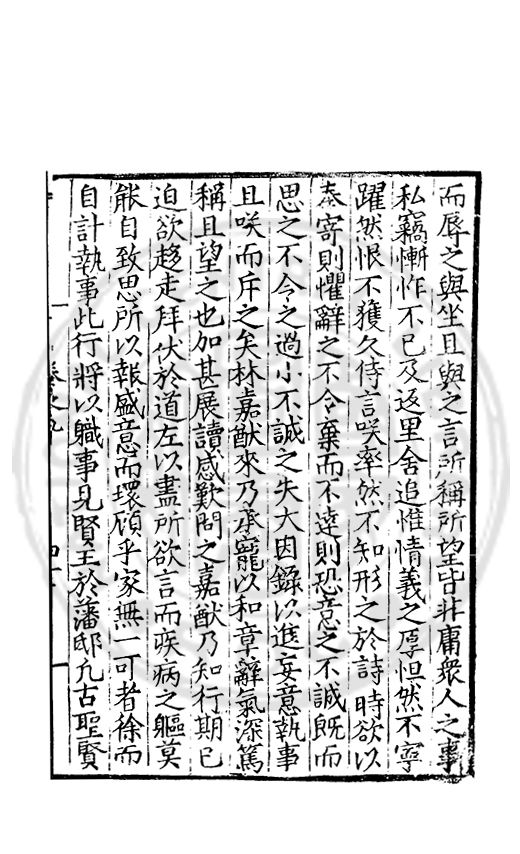 而辱之與坐且與之言所稱所望皆非庸衆人之事
私竊慚怍不已及返里舍追惟情義之厚怛然不寧
躍然恨不獲久侍言咲率然不知形之於詩時欲以
奉寄則懼辭之不令棄而不達則恐意之不誠旣而
思之不令之過小不誠之失大因錄以進妄意執事
且咲而斥之矣林嘉猷來乃承寵以和章辭氣深篤
稱且望之也加甚展讀感歎問之嘉猷乃知行期已
迫欲趍走拜伏於道左以盡所欲言而疾病之軀莫
能自致思所以報盛意而環顧乎家無一可者徐而
自計執事此行將以職事見賢王於藩邸凢古聖賢
卷之九